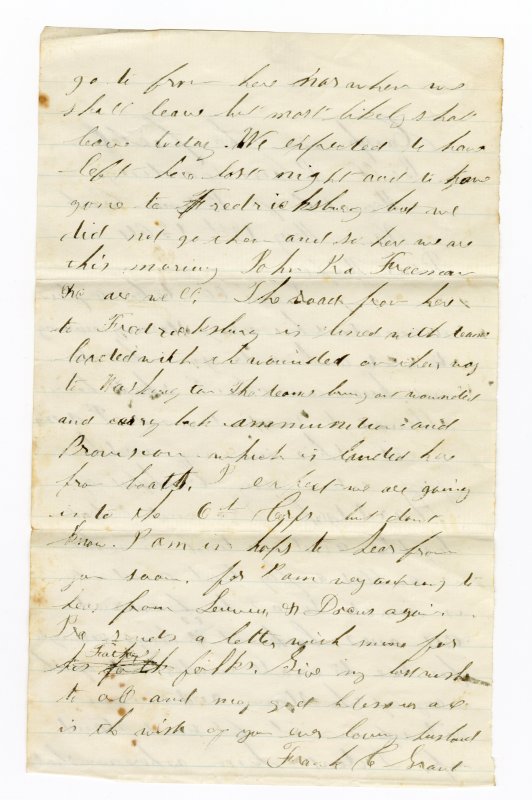 go to from here nor when we
shall leave but most likely shall
leave today. We expected to have
left here last night and to have
gone to Fredricksburg but we
did not go then and so here we are
this morning John Ira Freeman
are well. The road from here
to Fredricksburg is lined with teams
loaded with the wounded on their way
to Washington The teams bring out wounded
and carry back ammunition and
Provision which is landed here
from boats. I expect we are going
into the 6th Corps but dont
know. I am in hops to hear from
you soon. for I am very anxious to
hear from & again.
Ira sends a letter with mine for
his Father's folks. Give my best wishes
to all and may god bless us all
is the wish of your ever loving husband
Frank C Grant